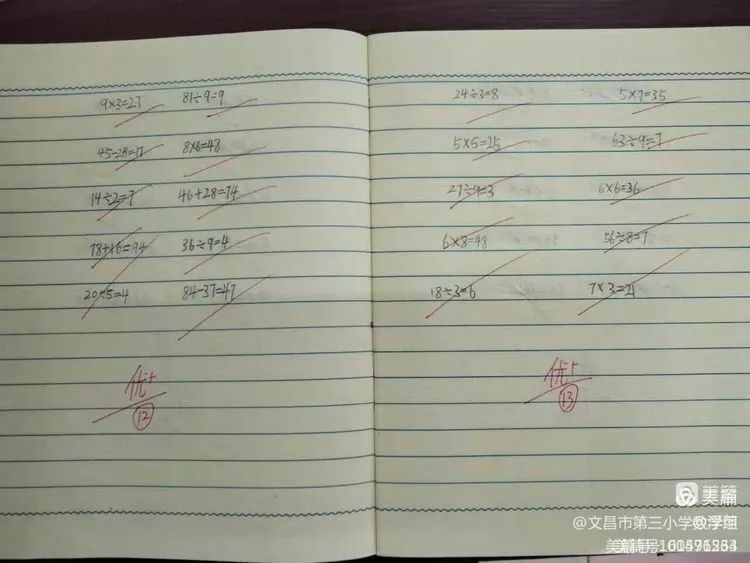 9×3=27 81÷9=9
45-28=17 8×6=48
14÷2=7 46+28=74
78+16=94 36÷9=4
20÷5=4 84-37=47
优+
12
24÷3=8 5×7=35
5×5=25 63÷9=7
27÷9=3 6×6=36
6×8=48 56÷8=7
18÷3=6 7×3=21
优+
13
美篇
@文昌市第三小学数学组